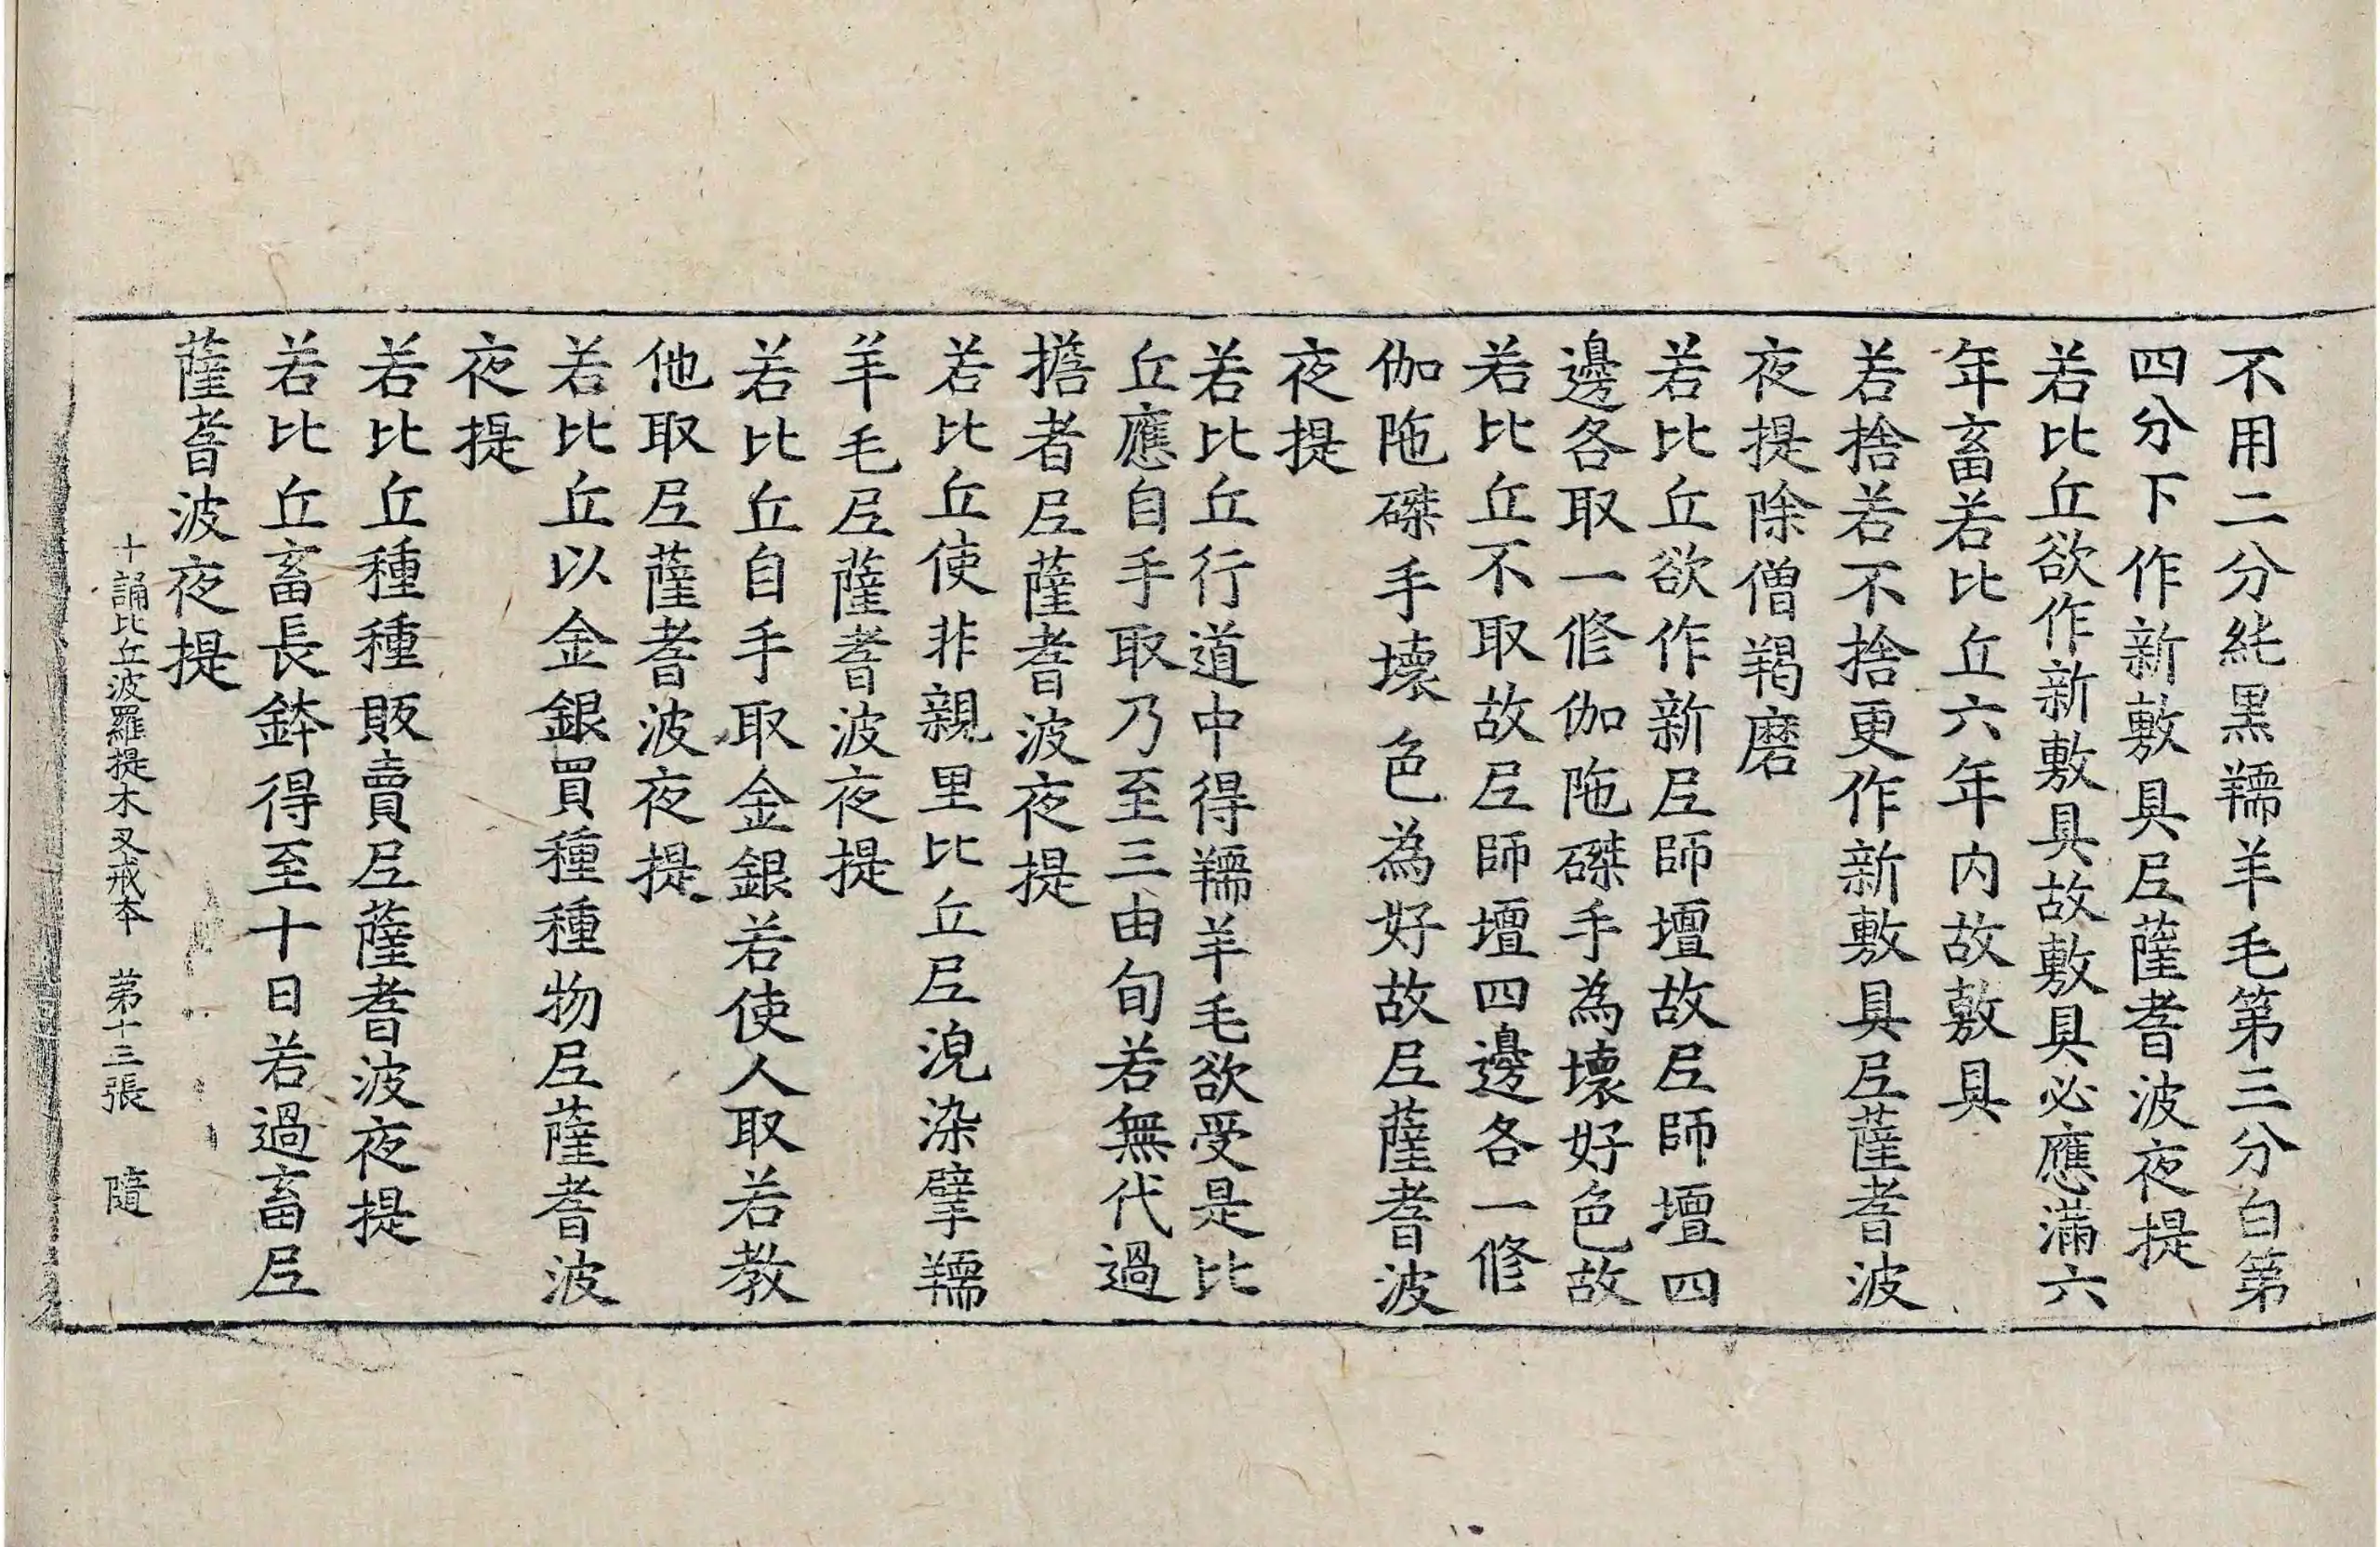 不用二分純黒羺羊毛第三分白第
四分下作新敷具尼薩耆波夜提
若比丘欲作新敷具故敷具必應滿六
年畜若比丘六年内故敷具
若捨若不捨更作新敷具尼薩耆波
夜提除僧羯磨
若比丘欲作新尼師壇故尼師壇四
邊各取一修伽陁磔手為壞好色故
若比丘不取故尼師壇四邊各一修
伽陁磔手壞色為好故尼薩耆波
夜提
若比丘行道中得羺羊毛欲受是比
丘應自手取乃至三由旬若無代過
擔者尼薩耆波夜提
若比丘使非親里比丘尼浣染擘羺
羊毛尼薩耆波夜提
若比丘自手取金銀若使人取若教
他取尼薩耆波夜提
若比丘以金銀買種種物尼薩耆波
夜提
若比丘種種販賣尼薩耆波夜提
若比丘畜長鉢得至十日若過畜尼
薩耆波夜提
十誦比丘波羅提木叉戒本 第十三張 隨